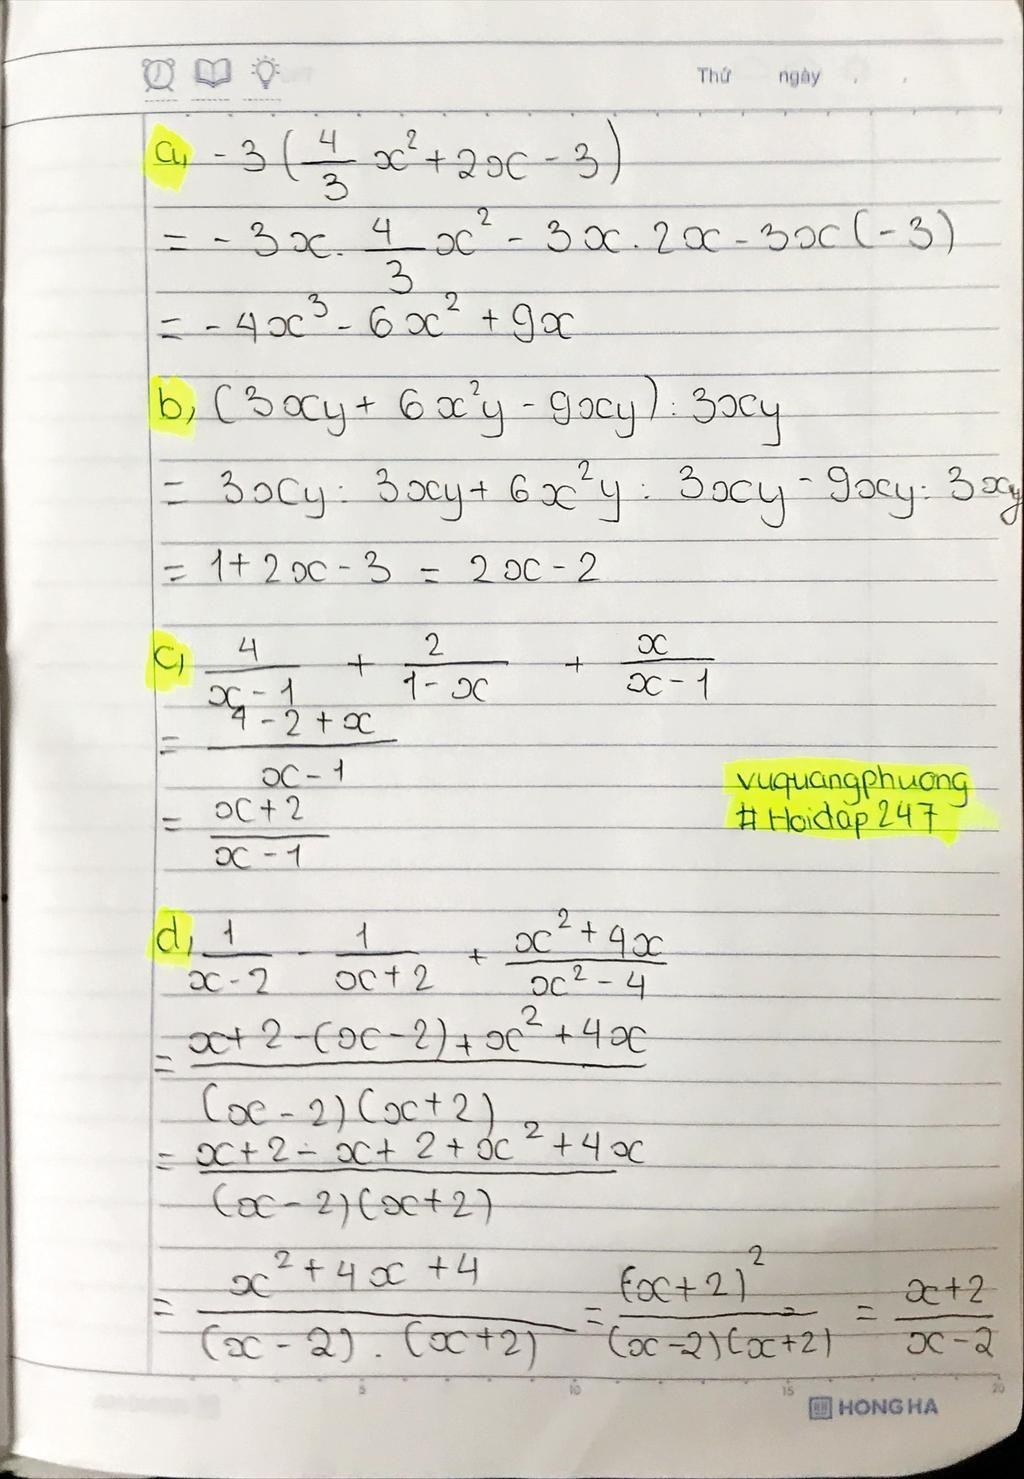 Thứ ngày . .
a, -3 ( 4/3 x² + 2x - 3 )
= - 3x . 4/3 x² - 3x . 2x - 3x ( -3 )
= - 4x³ - 6x² + 9x
b, (3xy + 6x²y - 9xy) : 3xy
= 3xy : 3xy + 6x²y : 3xy - 9xy : 3xy
= 1 + 2x - 3 = 2x - 2
c, 4/(x - 1) + 2/(1 - x) + x/(x - 1)
= (4 - 2 + x)/(x - 1)
vuquangphuong
# Hoidap 247
= (x + 2)/(x - 1)
d, 1/(x - 2) - 1/(x + 2) + (x² + 4x)/(x² - 4)
= (x + 2 - (x - 2) + x² + 4x)/((x - 2)(x + 2))
= (x + 2 - x + 2 + x² + 4x)/((x - 2)(x + 2))
= (x² + 4x + 4)/((x - 2) . (x + 2)) = (x + 2)²/((x - 2)(x + 2)) = (x + 2)/(x - 2)
5 10 15 20
HONG HA